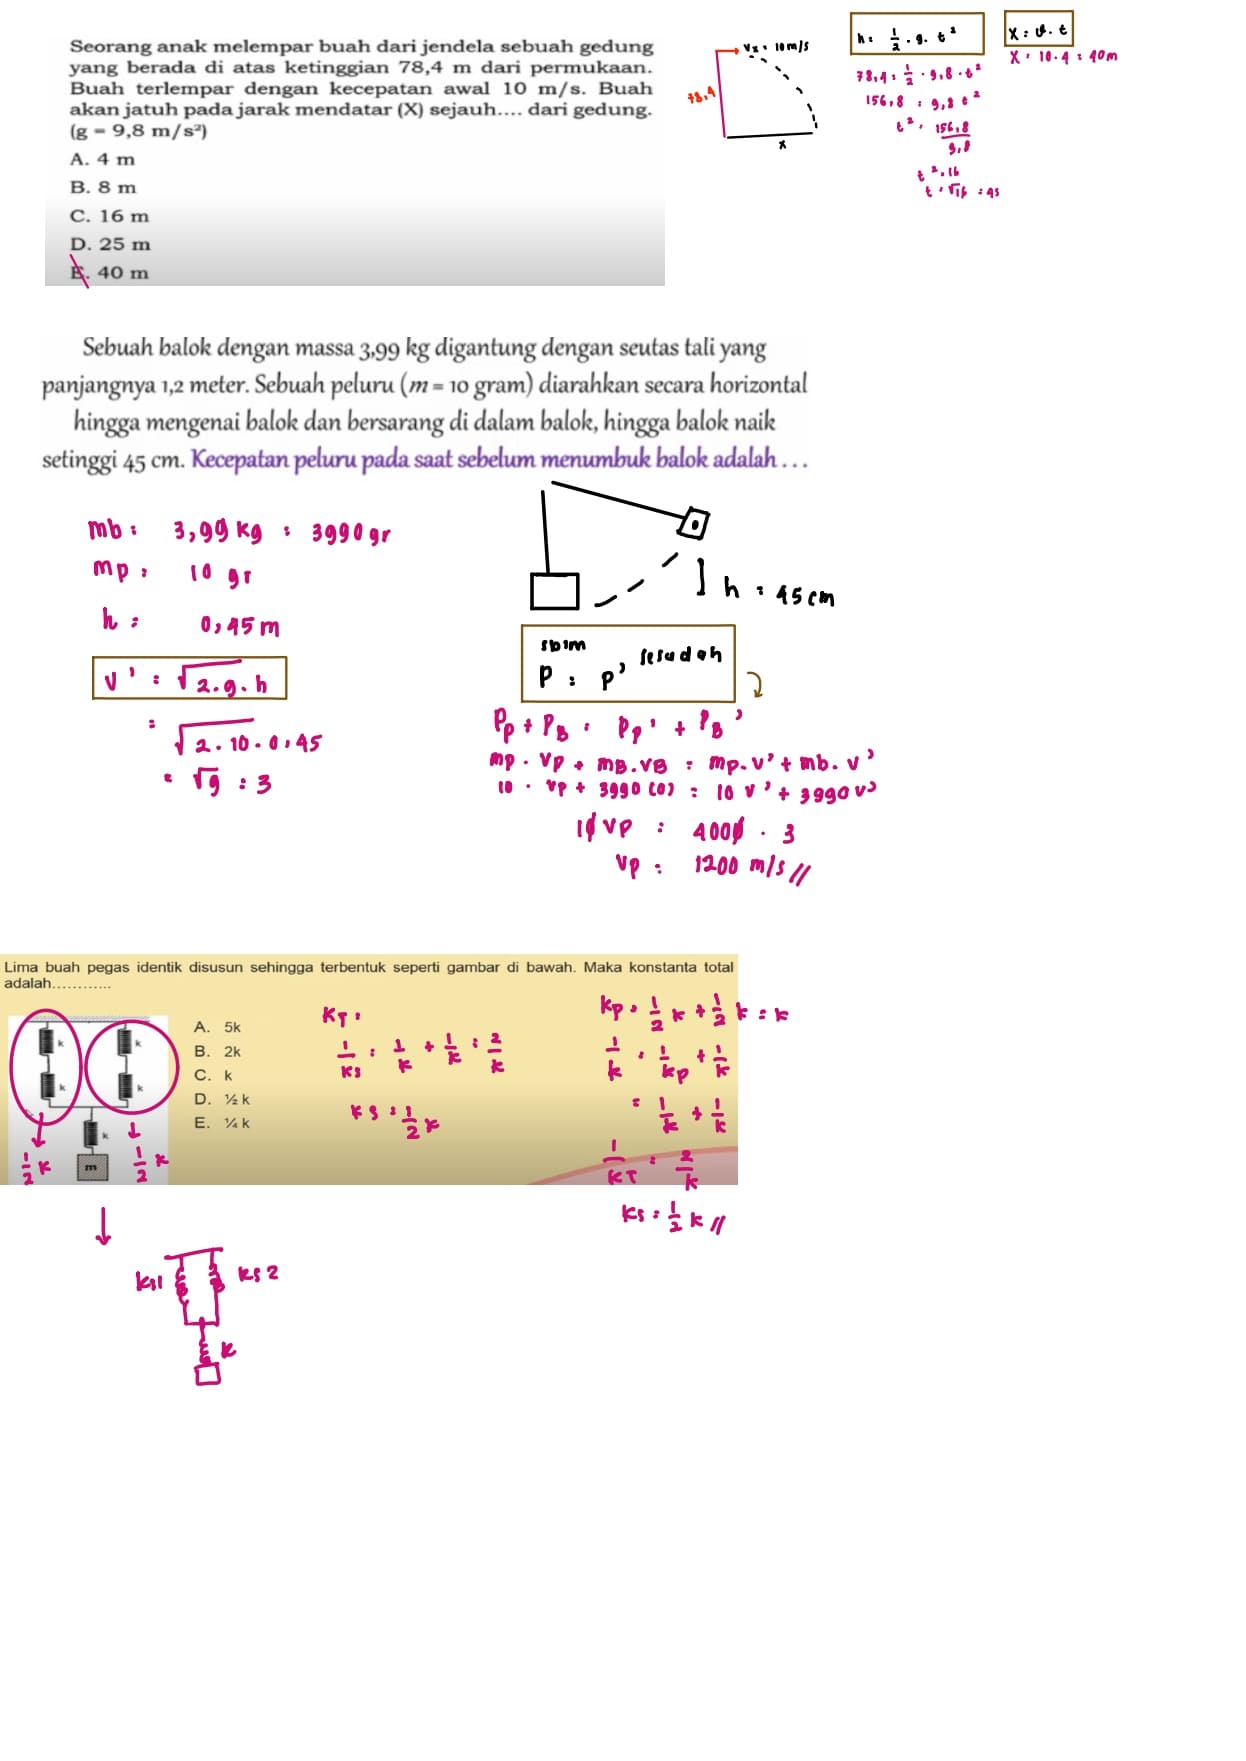 Seorang anak melempar buah dari jendela sebuah gedung
yang berada di atas ketinggian 78,4 m dari permukaan.
Buah terlempar dengan kecepatan awal 10 m/s. Buah
akan jatuh pada jarak mendatar (X) sejauh.... dari gedung.
(g = 9,8 m/s²)
A. 4 m
B. 8 m
C. 16 m
D. 25 m
E. 40 m
Vx = 10 m/s
78,4
x
h = 1/2 . g. t²
78,4 = 1/2 . 9,8 . t²
156,8 = 9,8 t²
t² = 156,8/9,8
t² = 16
t = √16 = 4s
X = v. t
X = 10.4 = 40m
Sebuah balok dengan massa 3,99 kg digantung dengan seutas tali yang
panjangnya 1,2 meter. Sebuah peluru (m = 10 gram) diarahkan secara horizontal
hingga mengenai balok dan bersarang di dalam balok, hingga balok naik
setinggi 45 cm. Kecepatan peluru pada saat sebelum menumbuk balok adalah . . .
mb = 3,99 kg = 3990 gr
mp = 10 gr
h = 0,45 m
v' = √2.g.h
= √2.10.0,45
= √9 = 3
h = 45 cm
sblm
sesudah
P = P'
Pp + PB = Pp' + PB'
mp . Vp + mB.VB = mp.v' + mb.v'
10 . Vp + 3990 (0) = 10 v' + 3990 v'
10 Vp = 4000 . 3
Vp = 1200 m/s //
Lima buah pegas identik disusun sehingga terbentuk seperti gambar di bawah. Maka konstanta total
adalah............
k
k
k
k
k
m
1/2 k
1/2 k
A. 5k
B. 2k
C. k
D. ½ k
E. ¼ k
KT =
1/Ks = 1/k + 1/k = 2/k
Ks = 1/2 k
Kp = 1/2 k + 1/2 k = k
1/k = 1/kp + 1/k
= 1/k + 1/k
1/KT = 2/k
Ks = 1/2 k //
ks1
ks 2
k